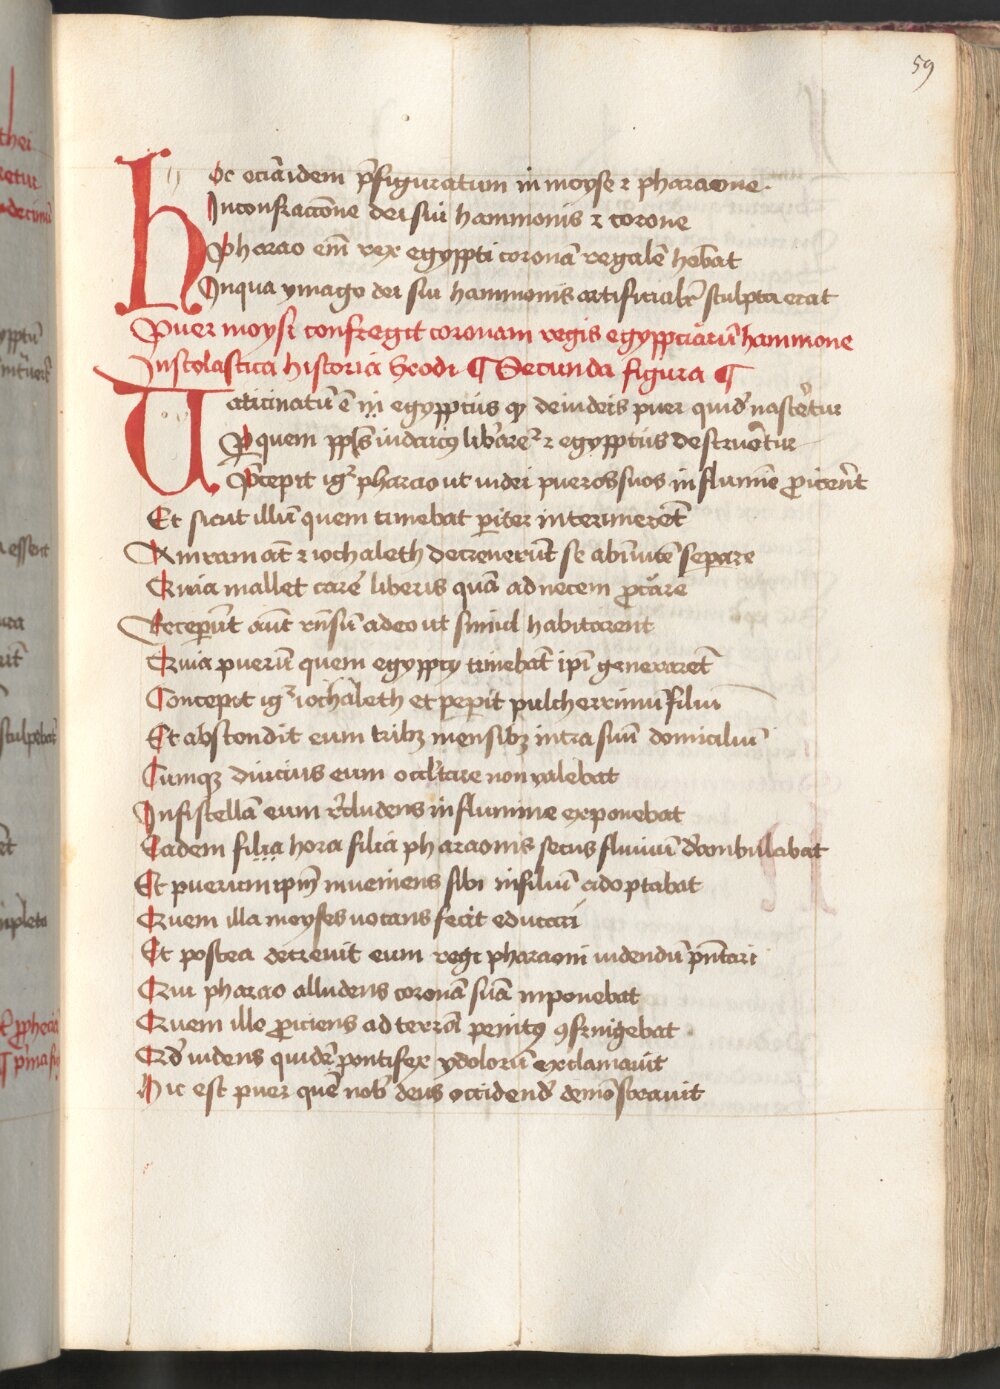 59
Hoc eciā idem p̄figuratum in moyse ⁊ pharaone.
In confraccione dei sui hammonis ⁊ corone
Pharao em̄ rex egyppti coronā regalē heb̄at
In qua ymago dei sui hammonis artificialr̄ sculpta erat
Puer moyses confregit coronam regis egyppciārū hammone
In scolastica historia Exodi ¶ Secunda figura ¶
Vaticinatū ē in egypptiis qͥ de iudeis puer quid̄ nascēr̄tur
Per quem ppl̄s iudaicꝰ lib̄areᷓ ⁊ egypptiis destruēr̄tur
P̄cepit igͥ pharao ut iudei pueros suos in flumīe ꝓicerēt
Et sicut illū quem timebat pariter interimerēt
Amram aūt ⁊ iochabeth decreuerūt se ab inuicē separe
Quia mallēt carē liberis quā ad necem ꝓcr̄are
Receperūt aūt rn̄sū a deo ut simul habitarent
Quia puerū quem egypptii timebāt ip̄i generarēt
Concepit igͥ iochabeth et peperit pulcherrimū filiū
Et abscondit eum tribꝫ mensibꝫ intra suū domiciliū
Cumqꝫ diucius eum occultare non valebat
In fistellā eum r̄cludens in flumine exponebat
Eadem filia hora filia pharaonis secus fluuiū deambulabat
Et puerum ip̄m inueniens sibi in filiū adoptabat
Quem illa moyses vocans fecit educari
Et postea decreuit eum regi pharaoni videndū p̄ntari
Cui pharao alludens coronā suā inponebat
Quem ille ꝓiciens ad terrā penitꝰ ꝯfringebat
Qd̄ videns quidā pontifex ydolorū exclamauit
Hic est puer quē nob̄ deus occidend̄ demōstrauit